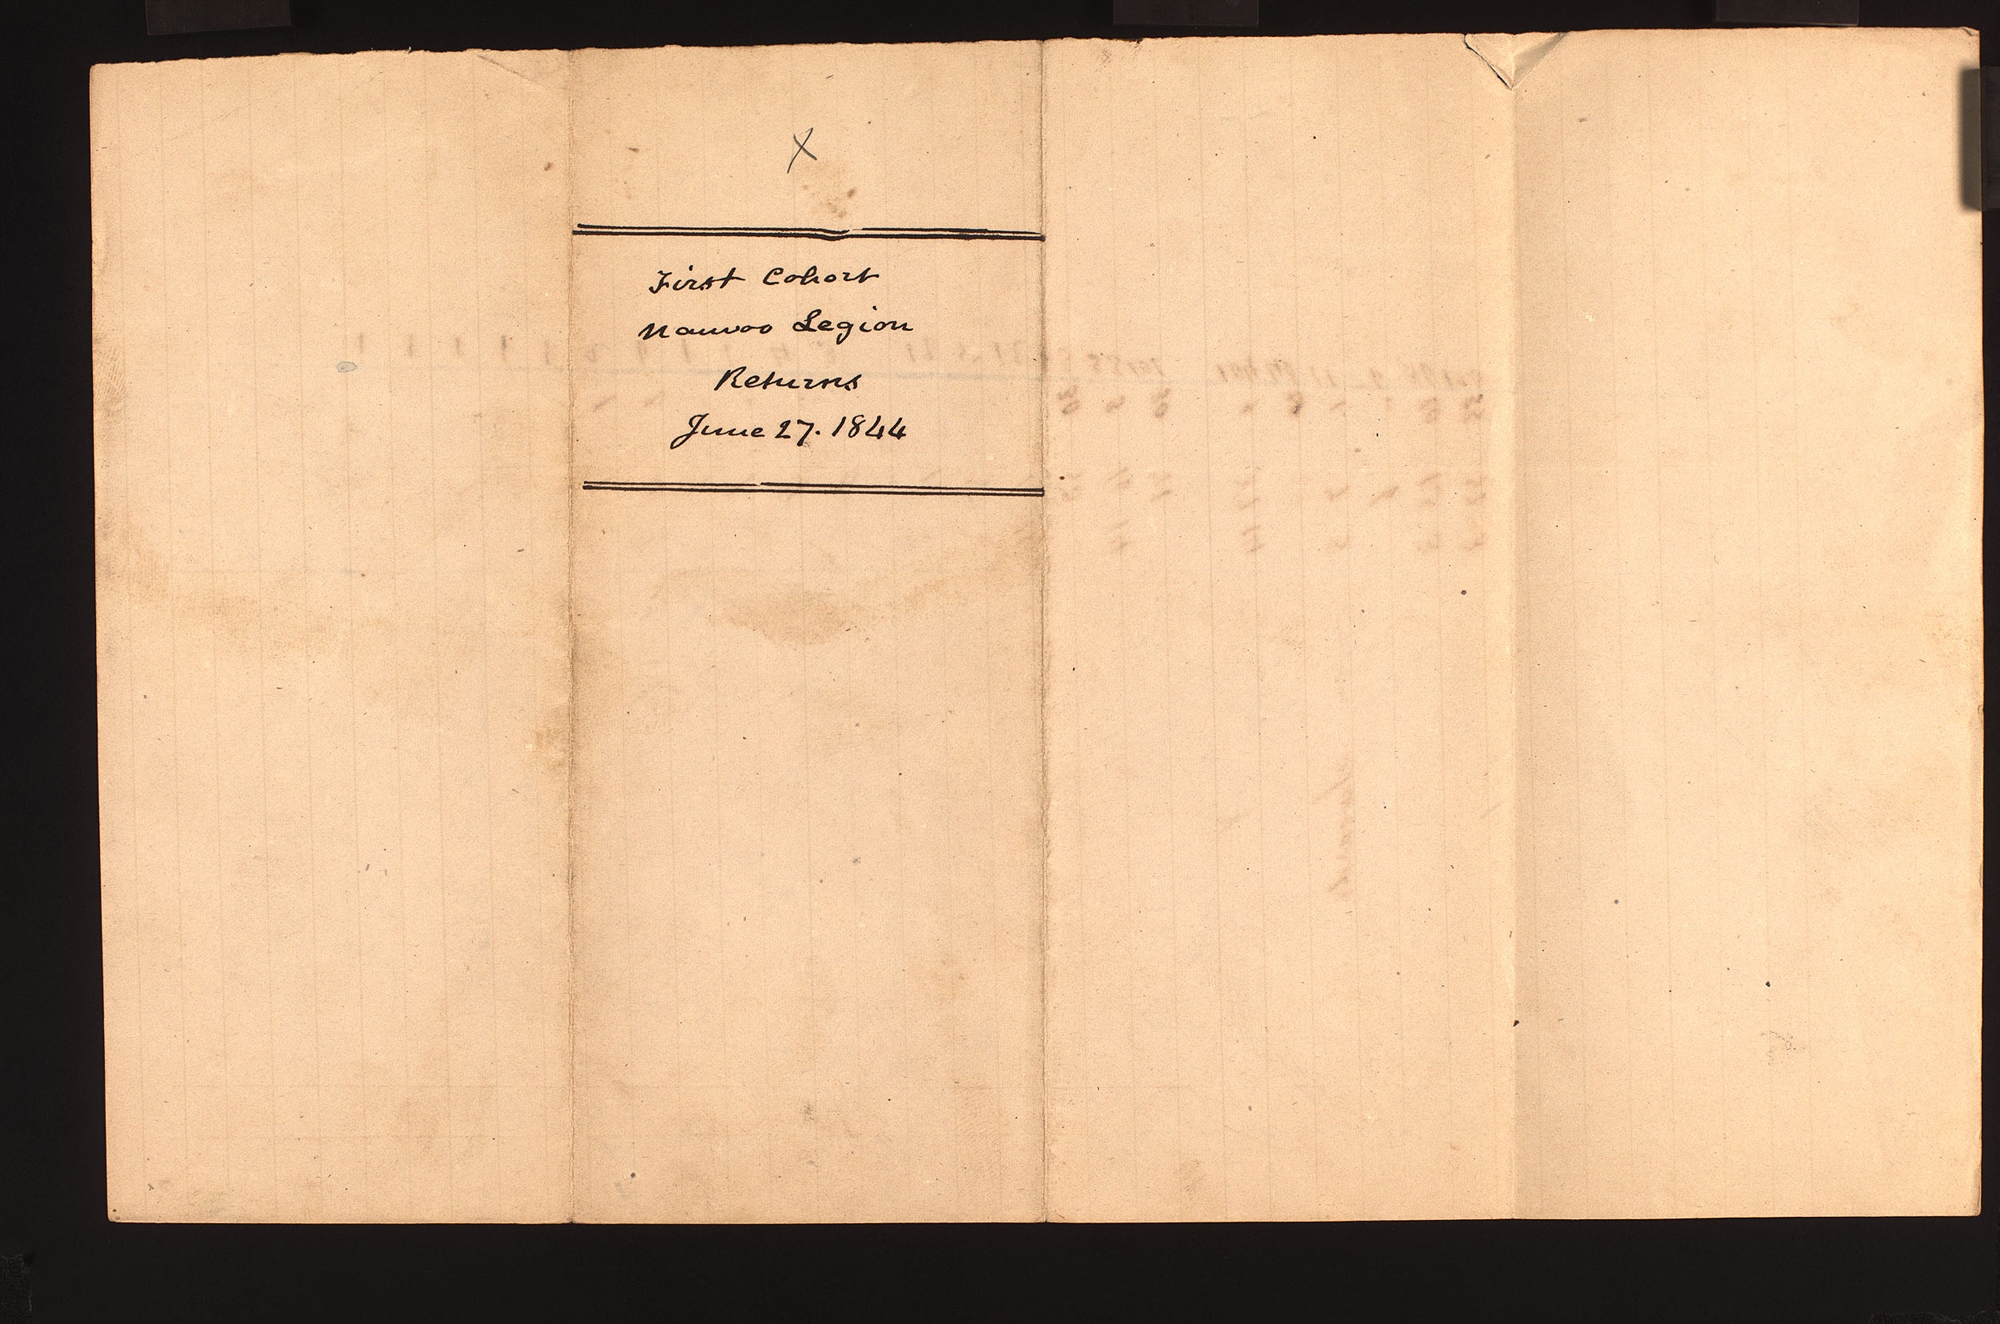 X
First Cohort
Nauvoo Legion
Returns
June 27. 1844